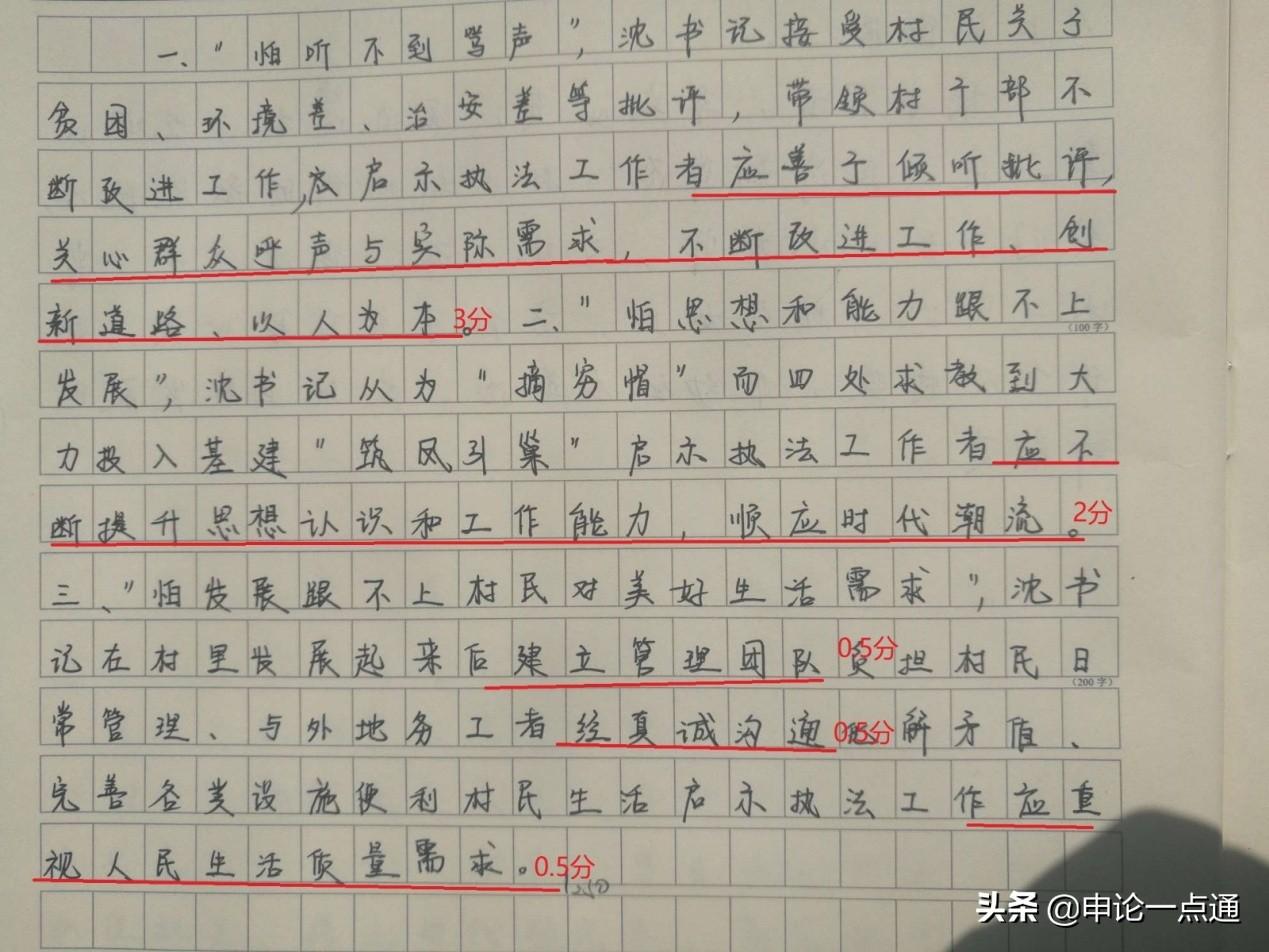 一、"怕听不到骂声",沈书记接受村民关于
贫困、环境差、治安差等批评,带领村干部不
断改进工作,启示执法工作者应善于倾听批评,
关心群众呼声与实际需求,不断改进工作、创
新道路、以人为本。3分 二、"怕思想和能力跟不上
(100字)
发展",沈书记从为"摘穷帽"而四处求教到大
力投入基建"筑凤引巢"启示执法工作者应不
断提升思想认识和工作能力,顺应时代潮流。2分
三、"怕发展跟不上村民对美好生活需求",沈书
记在村里发展起来后建立管理团队0.5分负担村民日
(200字)
常管理、与外地务工者经真诚沟通0.5分解矛盾、
完善各类设施便利村民生活启示执法工作应重
视人民生活质量需求。0.5分
头条 @申论一点通